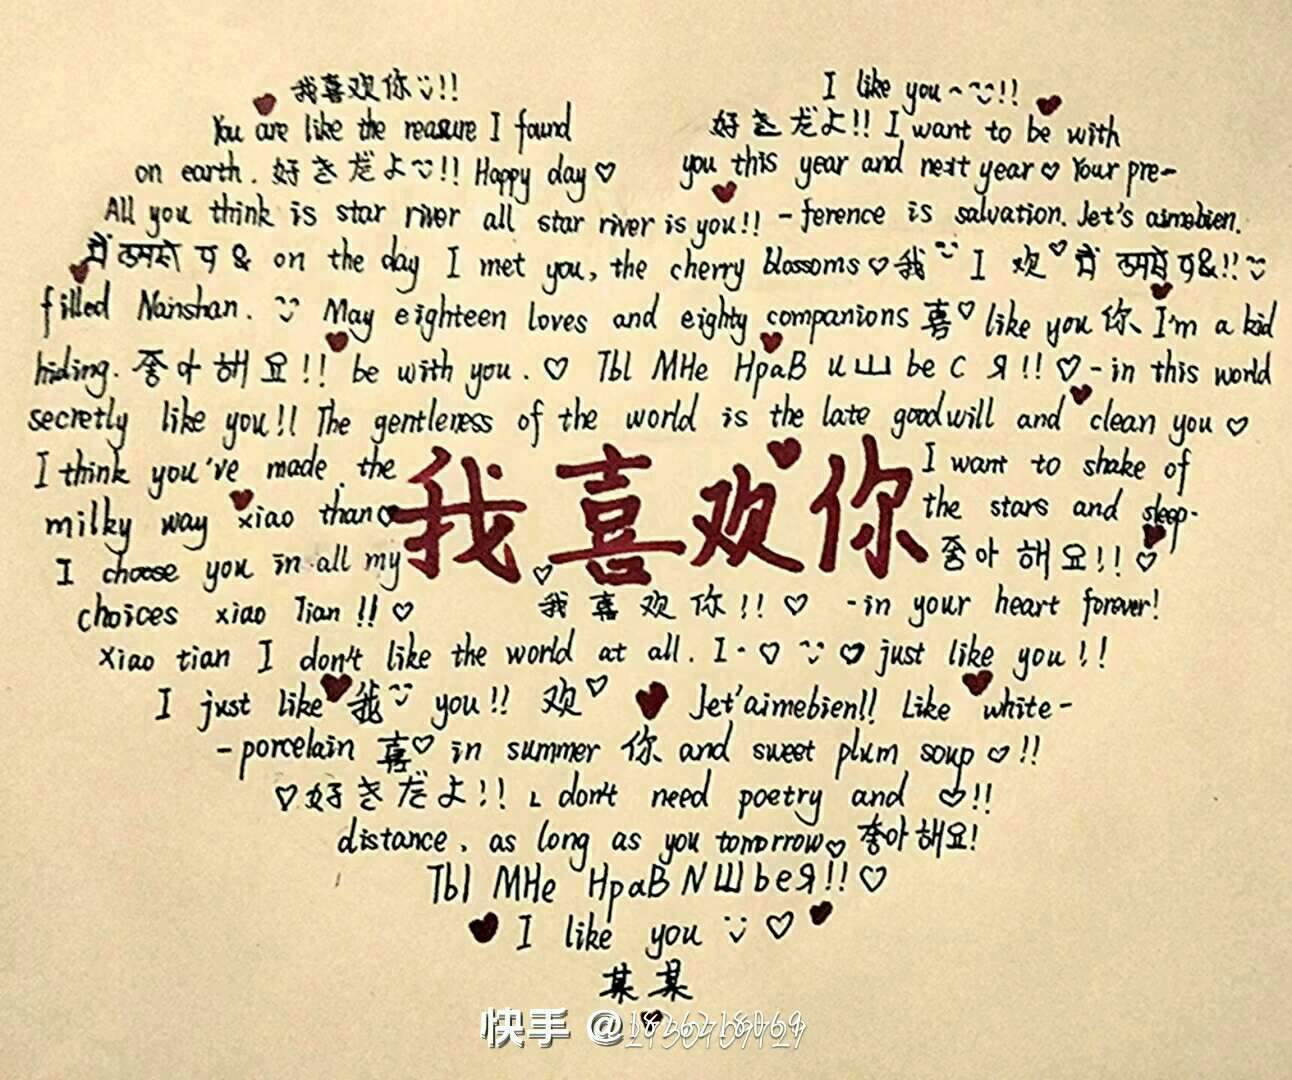 我喜欢你!! I like you~!!
You are like the reasure I found 好きだよ!! I want to be with
on earth. 好きだよ!! Happy day♡ you this year and next year♡ Your pre-
All you think is star river all star river is you!! -ference is salvation. Jet's aimebien.
on the day I met you, the cherry blossoms♡我 I 欢♡
filled Nanshan. May eighteen loves and eighty companions 喜♡like you 你、I'm a kid
hiding. 좋아해요!! be with you.♡ Tbl MHe HpaB и Ш be C Я!!♡-in this world
secretly like you!! The gentleness of the world is the late goodwill and clean you♡
I think you've made the I want to shake of
我喜欢你
milky way xiao than the stars and sleep-
I choose you in all my 좋아해요!!♡
choices xiao Tian!!♡ 我喜欢你!!♡ -in your heart forever!
xiao tian I don't like the world at all. I-♡♡just like you!!
I just like 我 you!! 欢♡ Jet'aimebien!! Like white-
-porcelain 喜♡ in summer 你 and sweet plum soup♡!!
♡好きだよ!! I don't need poetry and ♡!!
distance, as long as you tomorrow♡좋아해요!
Tbl MHe HpaB N Ш be Я!!♡
I like you ♡
某某
快手